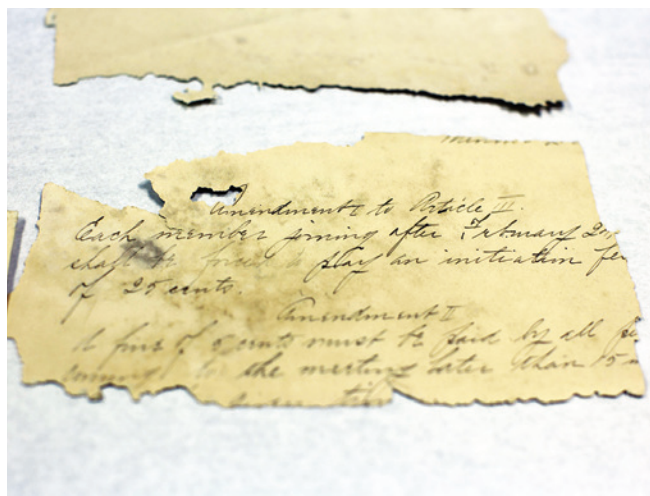 Amendment to Article III.
Each member joining after February 2nd
shall be forced to pay an initiation fee
of 25 cents.
Amendment II
A fine of 5 cents must be paid by all
coming to the meeting later than 15